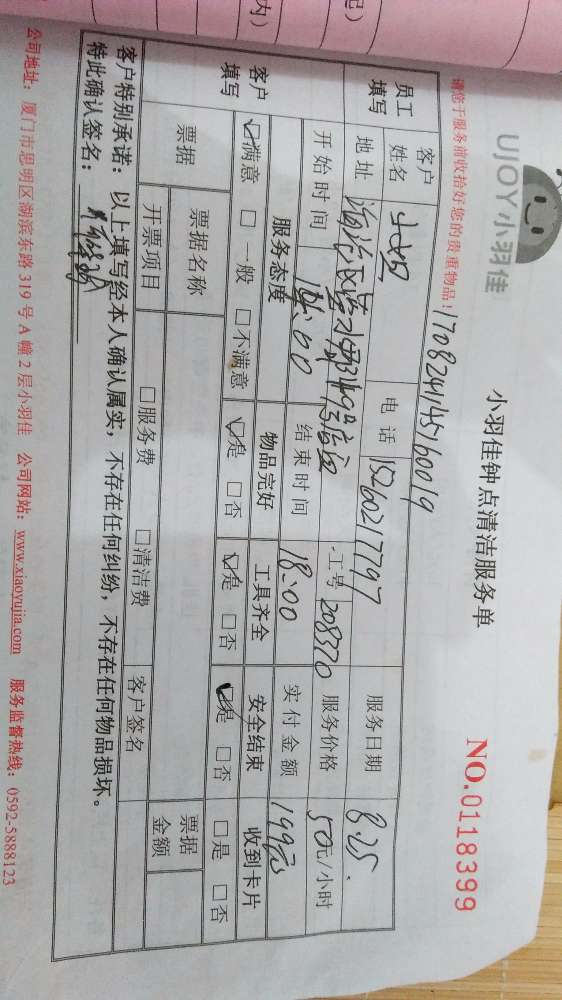 起)
内)
UJOY小羽佳
小羽佳钟点清洁服务单
NO.0118399
请您于服务前收拾好您的贵重物品!
170824145160019
员工填写
客户姓名
电话 15260217797
服务日期 8.25.
地址
工号 208370
服务价格 50元/小时
开始时间 14:00
结束时间 18:00
实付金额 199元
客户填写
服务态度 物品完好 工具齐全 安全结束 收到卡片
☑满意 □一般 □不满意 ☑是 □否 ☑是 □否 ☑是 □否 □是 □否
票据
票据名称
票据金额
开票项目 □服务费 □清洁费 客户签名
客户特别承诺:以上填写经本人确认属实,不存在任何纠纷,不存在任何物品损坏。
特此确认签名:
公司地址:厦门市思明区湖滨东路319号A幢2层小羽佳 公司网站:www.xiaoyujia.com 服务监督热线:0592-5888123